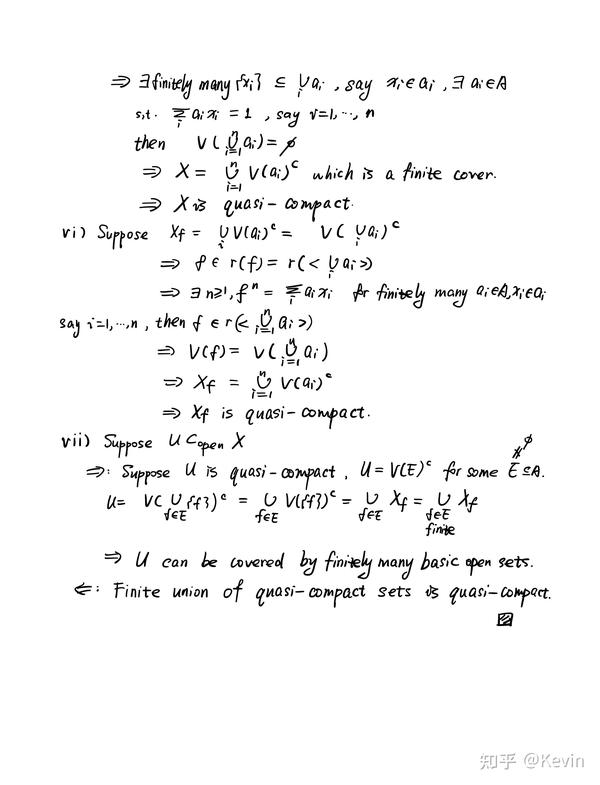 ⇒ ∃ finitely many {xᵢ} ⊆ ∪ᵢ aᵢ , say xᵢ∈aᵢ , ∃ aᵢ∈A
s.t. Σᵢ aᵢxᵢ = 1 , say i=1,⋯, n
then V(∪ᵢ₌₁ⁿ aᵢ)=∅
⇒ X = ∪ᵢ₌₁ⁿ V(aᵢ)ᶜ which is a finite cover.
⇒ X is quasi-compact.
vi) Suppose X_f = ∪ᵢ V(aᵢ)ᶜ = V(∪ᵢ aᵢ)ᶜ
⇒ f ∈ r(f) = r(<∪ᵢ aᵢ>)
⇒ ∃ n≥1, fⁿ = Σᵢ aᵢxᵢ for finitely many aᵢ∈A, xᵢ∈aᵢ
say i=1,⋯,n , then f ∈ r(<∪ᵢ₌₁ⁿ aᵢ>)
⇒ V(f) = V(∪ᵢ₌₁ⁿ aᵢ)
⇒ X_f = ∪ᵢ₌₁ⁿ V(aᵢ)ᶜ
⇒ X_f is quasi-compact.
vii) Suppose U ⊂open X
⇒: Suppose U is quasi-compact, U=V(E)ᶜ for some ∅≠E⊆A.
U= V(∪_{f∈E} {f})ᶜ = ∪_{f∈E} V({f})ᶜ = ∪_{f∈E} X_f = ∪_{f∈E finite} X_f
⇒ U can be covered by finitely many basic open sets.
⇐: Finite union of quasi-compact sets is quasi-compact.
知乎 @Kevin